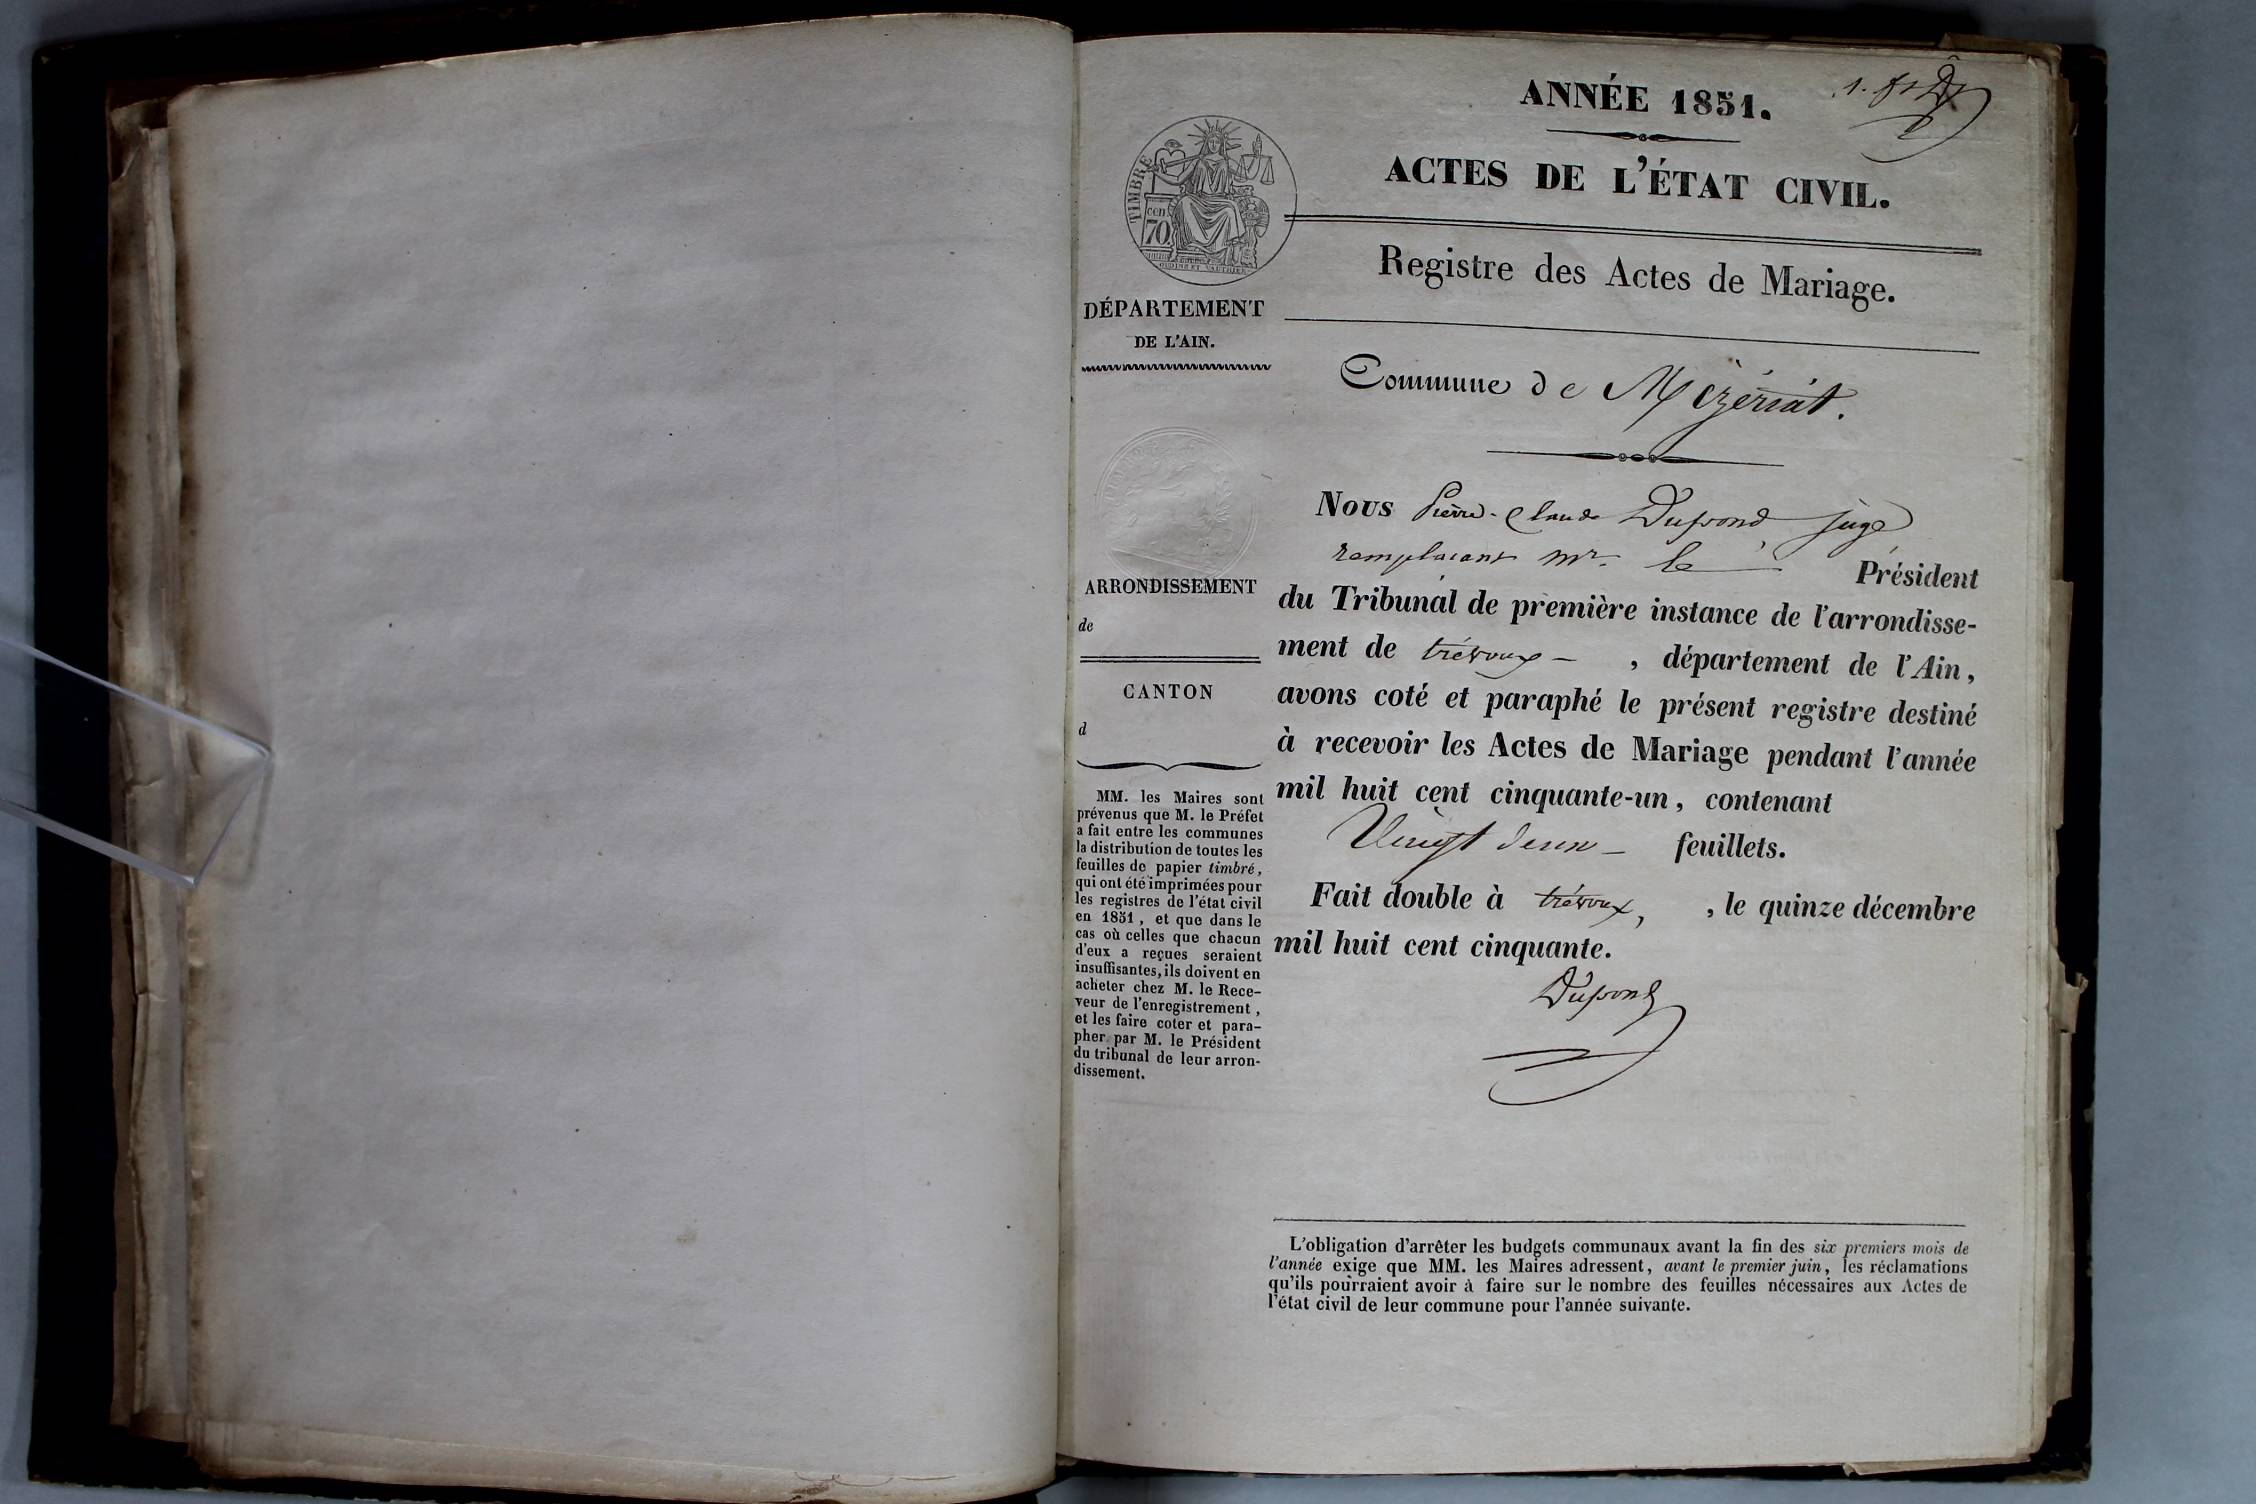 ANNÉE 1851.
ACTES DE L'ÉTAT CIVIL.
Registre des Actes de Mariage.
TIMBRE
cen
70
OUDINÉ ET VAUTHIER
DÉPARTEMENT
DE L'AIN.
Commune de Mézériat.
Nous Pierre-Claude Dupond juge
remplacant Mr. le Président
du Tribunal de première instance de l'arrondisse-
ment de trévoux — , département de l'Ain,
avons coté et paraphé le présent registre destiné
à recevoir les Actes de Mariage pendant l'année
mil huit cent cinquante-un, contenant
Vingt deux — feuillets.
Fait double à trévoux, , le quinze décembre
mil huit cent cinquante.
Dupond
ARRONDISSEMENT
de
CANTON
d
MM. les Maires sont
prévenus que M. le Préfet
a fait entre les communes
la distribution de toutes les
feuilles de papier timbré,
qui ont été imprimées pour
les registres de l'état civil
en 1851, et que dans le
cas où celles que chacun
d'eux a reçues seraient
insuffisantes, ils doivent en
acheter chez M. le Rece-
veur de l'enregistrement,
et les faire coter et para-
pher par M. le Président
du tribunal de leur arron-
dissement.
L'obligation d'arrêter les budgets communaux avant la fin des six premiers mois de
l'année exige que MM. les Maires adressent, avant le premier juin, les réclamations
qu'ils pourraient avoir à faire sur le nombre des feuilles nécessaires aux Actes de
l'état civil de leur commune pour l'année suivante.